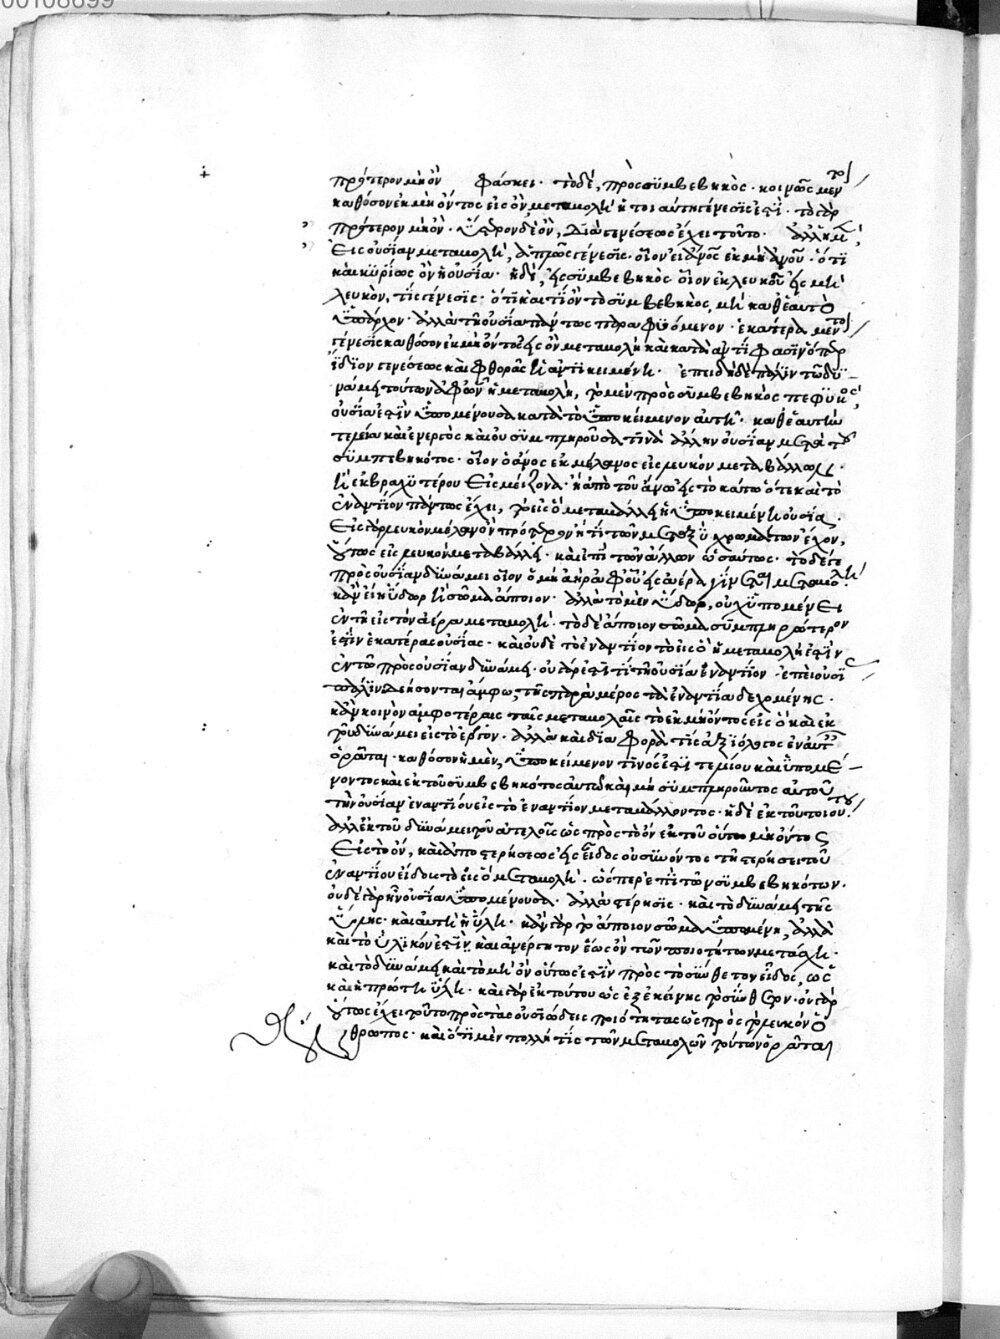 00108699
πρότερον μὴ ὄν φάσκει· τὸ δὲ, πρὸς συμβεβηκὸς· κοινῶς μὲν
καθόσον ἐκ μὴ ὄντος εἰς ὂν μεταβολὴ ἤτοι αὐτὴ γένεσίς ἐστι· τὸ γὰρ
πρότερον μὴ ὄν· ὕστερον δὲ ὄν, διὰ γενέσεως ἔχει τοῦτο· ἀλλ' ἡ μὲν,
εἰς οὐσίαν μεταβολὴ, ἁπλῶς γένεσις· οἷον εἰ ἄνος ἐκ μὴ ἄνου· ὅτι
καὶ κυρίως ὂν ἡ οὐσία· ἡ δὲ, εἰς συμβεβηκὸς οἷον ἐκ λευκοῦ εἰς μὴ
λευκὸν, τὶς γένεσις· ὅτι καὶ τὶ ὂν τὸ συμβεβηκὸς, μὴ καθ' ἑαυτὸ
ὑπάρχον· ἀλλὰ τῇ οὐσίᾳ πάντως παραφυόμενον· ἑκατέρα μέντοι
γένεσις καθόσον ἐκ μὴ ὄντος εἰς ὂν μεταβολὴ καὶ κατὰ ἀντίφασιν ὅπερ
ἴδιον γενέσεως καὶ φθορᾶς ἡ ἀντικειμένη· ἐπειδὴ δὲ πάλιν τῶν δυ-
νάμει τούτων ἀφ' ὧν ἡ μεταβολὴ, τὸ μὲν πρὸς συμβεβηκὸς πεφυκὸς,
οὐσία ἐστὶν ὑπομένουσα κατὰ τὸ ὑποκείμενον αὐτῆ· καθ' ἑαυτὴν
τελεία καὶ ἐνεργὸς καὶ οὐ συμπληροῦσα τινὰ ἄλλην οὐσίαν μετὰ τοῦ
συμβεβηκότος· οἷον ὁ ἄνος ἐκ μέλανος εἰς λευκὸν μεταβάλλων·
ἢ ἐκ βραχυτέρου εἰς μείζονα· ἢ ἀπὸ τοῦ ἄνω εἰς τὸ κάτω ὅτε καὶ τὸ
ἐναντίον πάντως ἔχει, τὸ εἰς ὃ μεταβάλλει ἡ ὑποκειμένη οὐσία·
εἰς γὰρ λευκὸν μέλαν ὂν πρότερον ἢ τὶ τῶν μεταξὺ χρωμάτων ἔχον,
οὕτως εἰς λευκὸν μεταβάλλει· καὶ ἐπὶ τῶν ἄλλων ὡσαύτως· τὸ δέ γε
πρὸς οὐσίαν δυνάμει οἷον
κἂν εἰ ἢ ὕδωρ ἢ σῶμα ἄποιον· ἀλλὰ τὸ μὲν ὕδωρ, οὐχ ὑπομένει
ἐν τῇ εἰς τὸν ἀέρα μεταβολῇ· τὸ δὲ ἄποιον σῶμα συμπληρωτερον
ἐστὶν ἑκατέρας οὐσίας· καὶ οὐδὲ τὸ ἐναντίον τὸ εἰς ὃ ἡ μεταβολή ἐστιν
ἐν τῷ πρὸς οὐσίαν δυνάμει· οὐ γάρ ἐστί τι τῇ οὐσίᾳ ἐναντίον· ἐπεὶ οὐσίας
πάλιν δεήσονται ἄμφω, τῆς παρὰ μέρος τὰ ἐναντία δεχομένης·
κἂν κοινὸν ἀμφοτέραις ταῖς μεταβολαῖς τὸ ἐκ μὴ ὄντος εἰς ὃ καὶ ἐκ
τοῦ δυνάμει εἰς τὸ ἔργον· ἀλλὰ καὶ διαφορὰ τὶς ἀξιόλογος ἐν αὐταῖς
ὁρᾶται· καθόσον ἡ μὲν, ὑποκείμενον τινός ἐστι τελείου καὶ ὑπομέ-
νοντος καὶ ἐκ τοῦ συμβεβηκότος αὐτῶ καὶ μὴ συμπληροῦντος αὐτοῦ
τὴν οὐσίαν ἐναντίου εἰς τὸ ἐναντίον μεταβάλλοντος· ἡ δὲ ἐκ τοῦ τοιούτου
ἀλλ' ἐκ τοῦ δυνάμει τοῦ ἀτελοῦς ὡς πρὸς τὸ ὂν ἐκ τοῦ οὕτω μὴ ὄντος
εἰς τὸ ὄν, καὶ ἀπὸ στερήσεως εἰς εἶδος οὐσιῶν ὄντος τῇ στερήσει τοῦ
ἐναντίου εἴδους τὸ εἰς ὃ μεταβολὴ· ὥσπερ ἐπὶ τῶν συμβεβηκότων·
οὐδὲ γὰρ ἦν οὐσία ὑπομένουσα· ἀλλὰ στέρησις· καὶ τὸ δυνάμει τῆς
ὕλης· καὶ αὐτὴ ἡ ὕλη· κἂν γὰρ τὸ ἄποιον σῶμα ὑπομένη, ἀλλὰ
καὶ τὸ ὑλικόν ἐστιν καὶ ἀνέργητον ἕως ὂν τῶν ποιοτήτων μετάσχῃ·
καὶ τὸ δυνάμει καὶ τὸ μὴ ὂν οὕτως ἐστὶν πρὸς τὸ σύνθετον εἶδος, ὡς
καὶ ἡ πρώτη ὕλη· καὶ γὰρ ἐκ τούτου ὡς ἐξ ἐκείνης τὸ σύνθετον· ὃν γὰρ
οὕτως ἔχει τοῦτο πρὸς τὰς οὐσιώδεις ποιότητας ὡς πρὸς τὸ λευκὸν ὁ
ἄνθρωπος· καὶ ὅτι μὲν πολλή τις τῶν μεταβολῶν τούτων ὁρᾶται